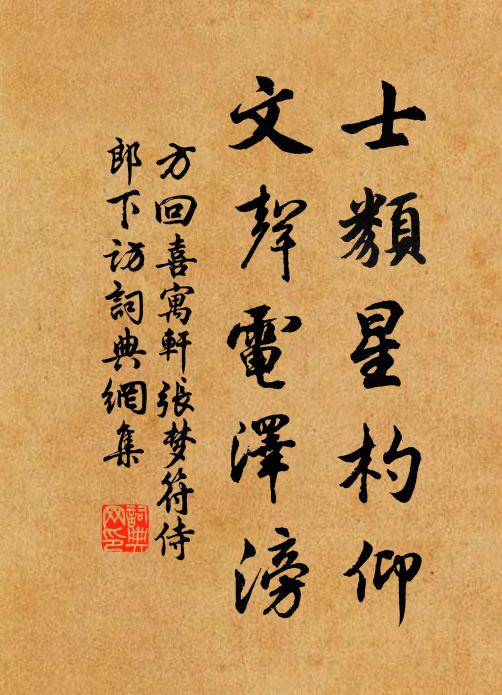 士類星杓仰
文聲電澤滂
方回喜寓軒張梦符侍
郎下访詞典網集
詞典网印